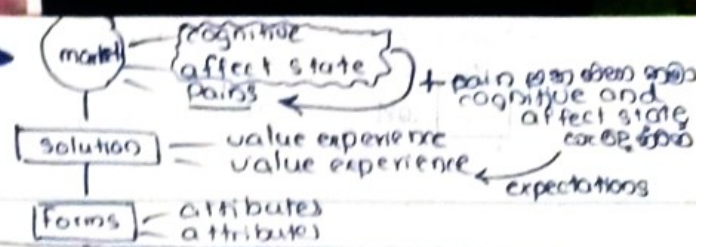 market
cognitive
affect state
pains
+ pain
cognitive and
affect state
solution
value experience
value experience
expectations
Forms
attributes
attributes